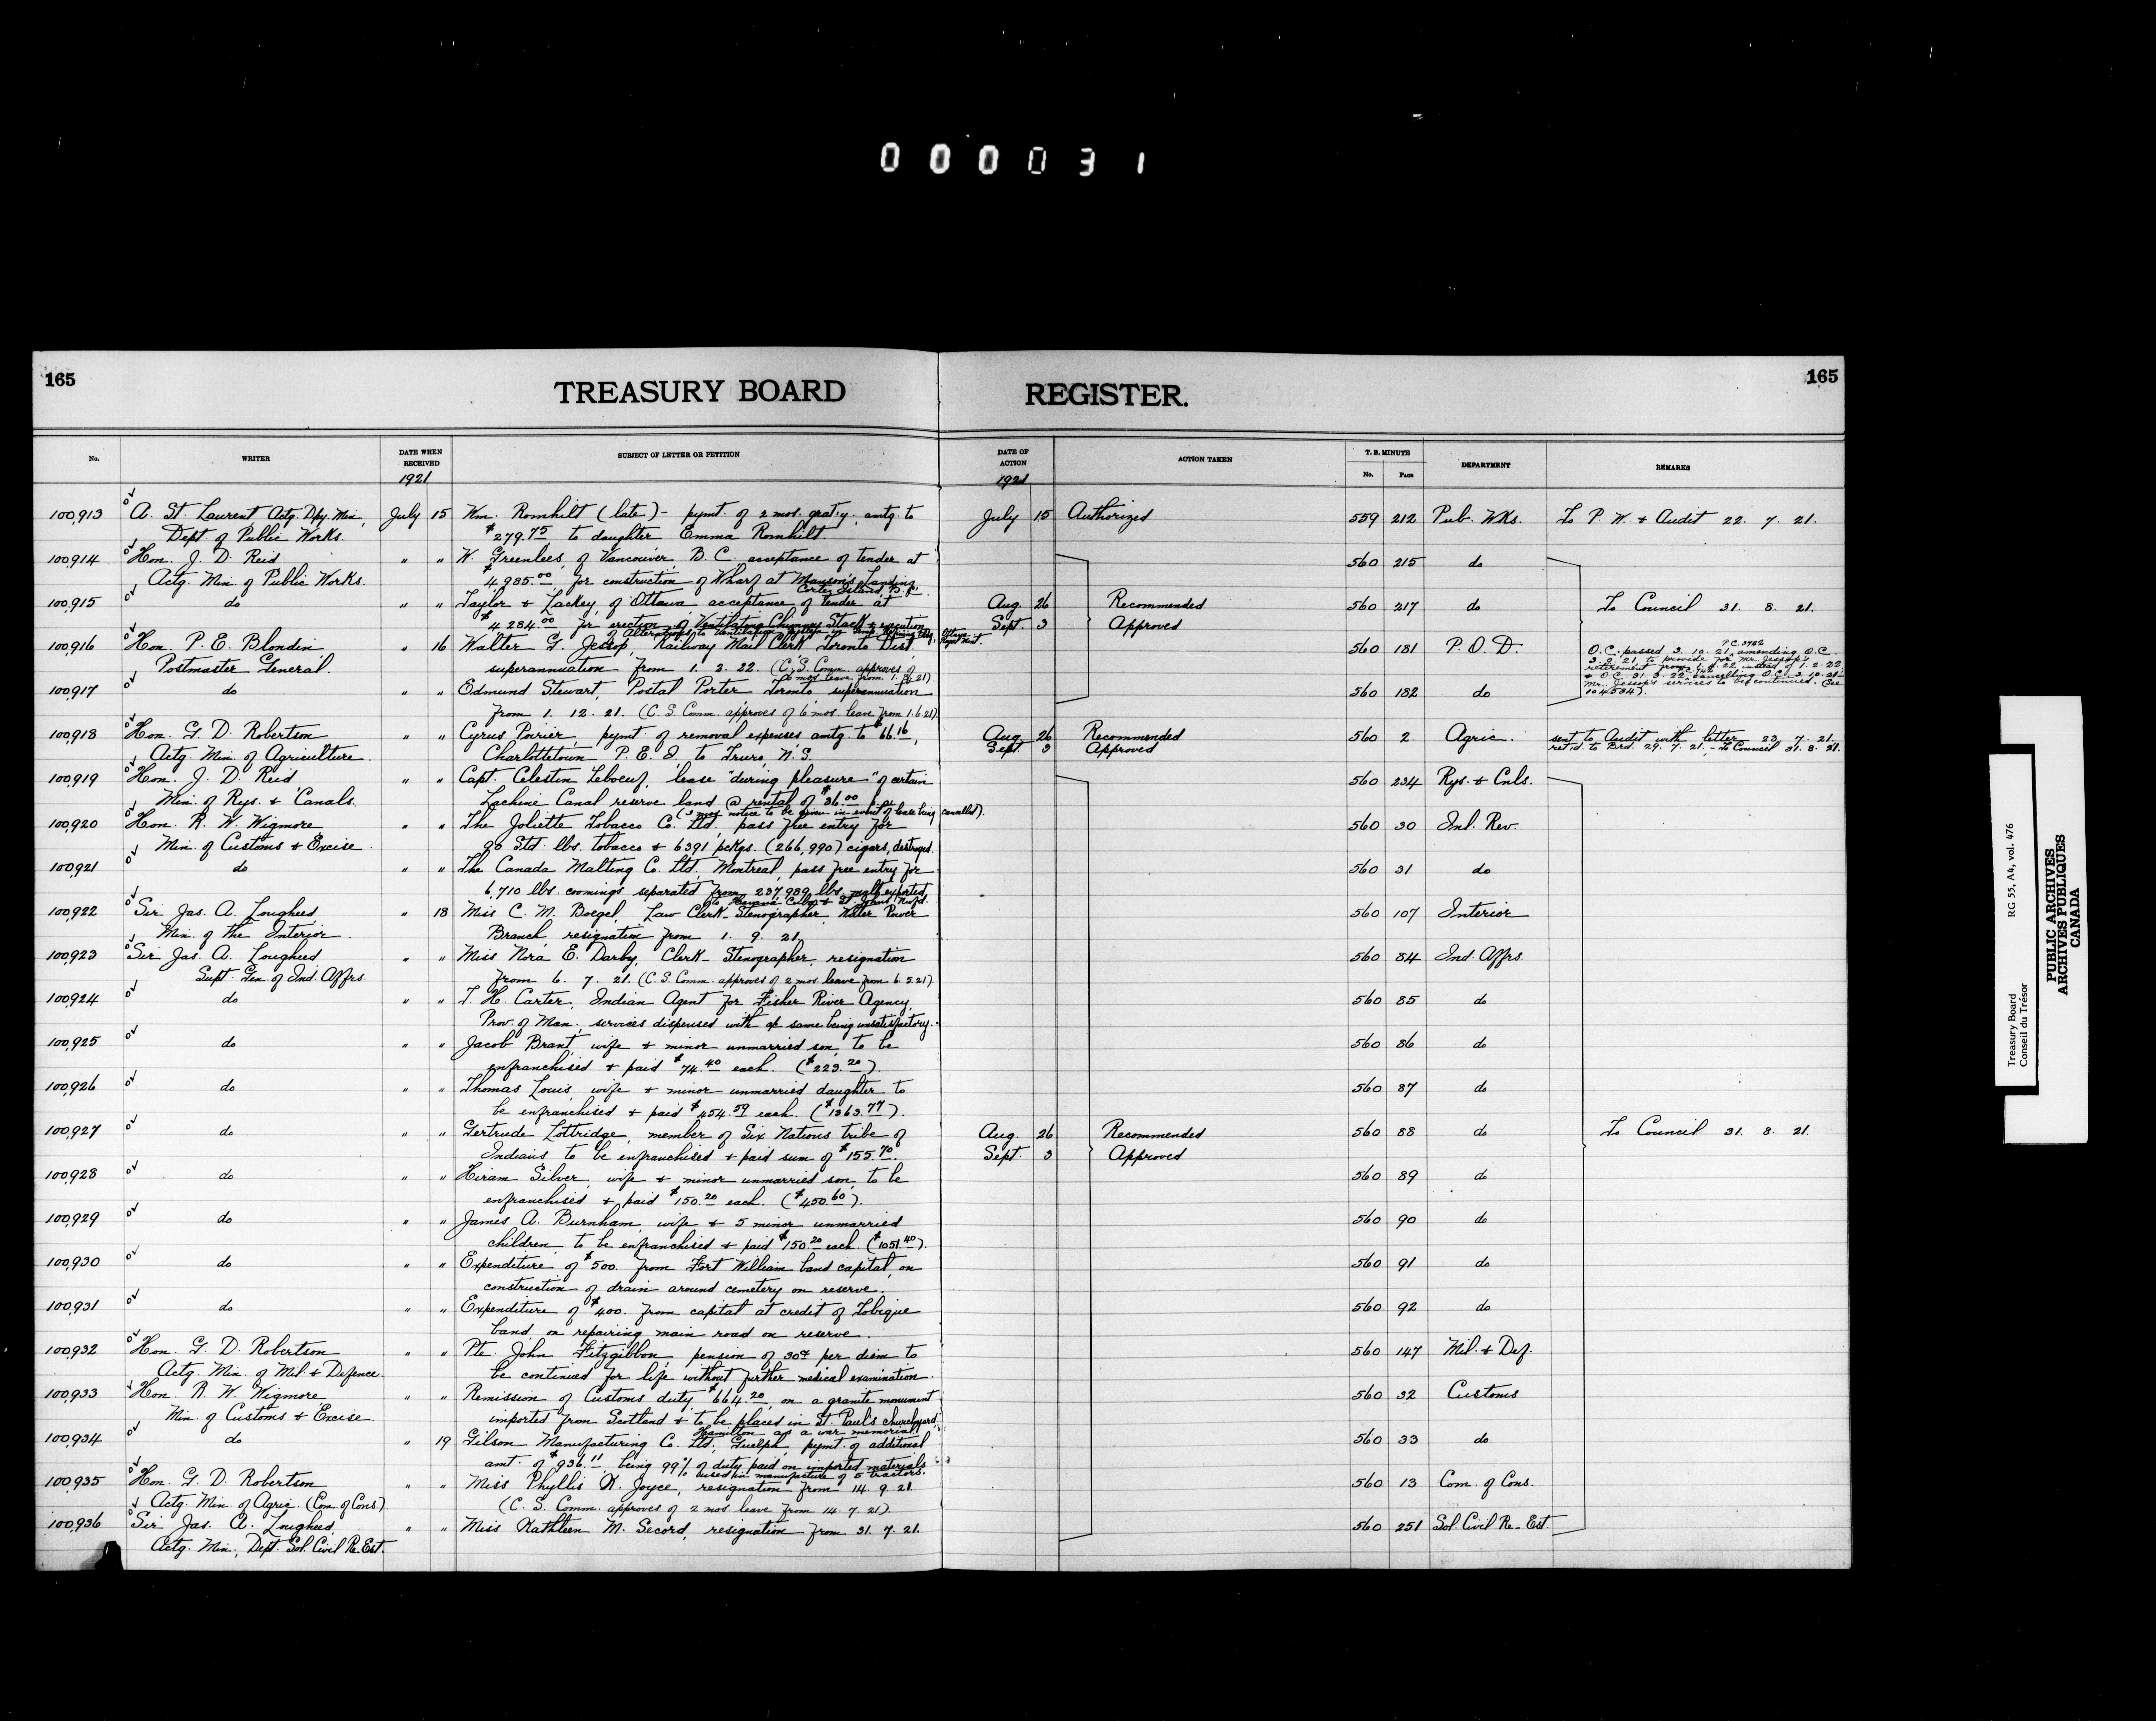 000031
165
TREASURY BOARD REGISTER.
165
No. WRITER DATE WHEN RECEIVED SUBJECT OF LETTER OR PETITION DATE OF ACTION ACTION TAKEN T. B. MINUTE No. Page DEPARTMENT REMARKS
1921 1921
100,913 A. St. Laurent Actg. Dpy. Min., July 15 Wm. Romhilt (late) - pymt. of 2 mos. grat'y. amtg. to July 15 Authorized 559 212 Pub. Wks. To P. W. & Audit 22. 7. 21.
Dept of Public Works. $279.75 to daughter Emma Romhilt.
100,914 Hon. J. D. Reid " " W. Greenlees, of Vancouver, B. C. acceptance of tender at 560 215 do
Actg. Min. of Public Works. $4,985.00 for construction of Wharf at Manson's Landing,
Cortez Island, B. C.
100,915 do " " Taylor & Lackey, of Ottawa, acceptance of tender at Aug. 26 Recommended 560 217 do To Council 31. 8. 21.
$4,284.00 for erection of Ventilating Chimney Stack & execution Sept. 3 Approved
of Alterations to Ventilation System in Bldg., Ottawa
100,916 Hon. P. E. Blondin " 16 Walter G. Jessop, Railway Mail Clerk Toronto Dist. 560 181 P. O. D.
Postmaster General. superannuation from 1. 2. 22. (C. S. Comm. approves of
6 mos leave from 1. 21)
P. C. 3742
O. C. passed 3. 10. 21, amending O. C.
3. 9. 21, to provide for Mr. Jessop's
retirement from 1. 4. 22 instead of 1. 2. 22.
& O. C. 31. 3. 22, cancelling O. C. 3. 10. 21
Mr. Jessop's services to be continued. (See
104534).
100,917 do " " Edmund Stewart, Postal Porter Toronto superannuation 560 182 do
from 1. 12. 21. (C. S. Comm. approves of 6 mos. leave from 1. 6. 21).
100,918 Hon. G. D. Robertson " " Cyrus Poirier, pymt. of removal expenses amtg. to $66.16, Aug. 26 Recommended 560 2 Agric. sent to Audit with letter 23. 7. 21.
Actg. Min. of Agriculture. Charlottetown P. E. I. to Truro, N. S. Sept. 3 Approved ret'd. to Brd. 29. 7. 21. - To Council 31. 8. 21.
100,919 Hon. J. D. Reid " " Capt. Celestin Leboeuf, lease "during pleasure" of certain 560 234 Rys. & Cnls.
Min. of Rys. & Canals. Lachine Canal reserve land @ rental of $36.00 p. a.
(3 mos. notice to be given in event of lease being cancelled).
100,920 Hon. R. W. Wigmore " " The Joliette Tobacco Co. Ltd., pass free entry for 560 30 Inl. Rev.
Min. of Customs & Excise. 90 Std. lbs. tobacco & 6391 pckgs. (266,990) cigars, destroyed.
100,921 do " " The Canada Malting Co. Ltd. Montreal, pass free entry for 560 31 do
6,710 lbs. coomings separated from 237,989 lbs. malt exported
to Havana Cuba & St. Johns Nwfd.
100,922 Sir Jas. A. Lougheed " 18 Miss C. M. Boegel, Law Clerk Stenographer Water Power 560 107 Interior
Min. of the Interior. Branch, resignation from 1. 9. 21.
100,923 Sir Jas. A. Lougheed " " Miss Nora E. Darby, Clerk-Stenographer, resignation 560 84 Ind. Affrs.
Supt. Gen. of Ind. Affrs. from 6. 7. 21. (C. S. Comm. approves of 2 mos leave from 6. 5. 21).
100,924 do " " T. H. Carter, Indian Agent for Fisher River Agency, 560 85 do
Prov. of Man., services dispensed with of same being unsatisfactory.
100,925 do " " Jacob Brant, wife & minor unmarried son, to be 560 86 do
enfranchised & paid $74.40 each. ($223.20).
100,926 do " " Thomas Louis, wife & minor unmarried daughter to 560 87 do
be enfranchised & paid $454.59 each. ($1363.77).
100,927 do " " Gertrude Lottridge, member of Six Nations tribe of Aug. 26 Recommended 560 88 do To Council 31. 8. 21.
Indians, to be enfranchised & paid sum of $155.70. Sept. 3 Approved
100,928 do " " Hiram Silver, wife & minor unmarried son, to be 560 89 do
enfranchised & paid $150.20 each. ($450.60).
100,929 do " " James A. Burnham, wife & 5 minor unmarried 560 90 do
children, to be enfranchised & paid $150.20 each ($1051.40).
100,930 do " " Expenditure of $500. from Fort William band capital, on 560 91 do
construction of drain around cemetery on reserve.
100,931 do " " Expenditure of $400. from capital at credit of Tobique 560 92 do
band, on repairing main road on reserve.
100,932 Hon. G. D. Robertson " " Pte. John Fitzgibbon, pension of 30¢ per diem to 560 147 Mil. & Def.
Actg. Min. of Mil. & Defence. be continued for life without further medical examination.
100,933 Hon. R. W. Wigmore " " Remission of Customs duty, $664.20, on a granite monument 560 32 Customs
Min. of Customs & Excise. imported from Scotland & to be placed in St. Paul's churchyard,
Hamilton as a war memorial.
100,934 do " 19 Gilson Manufacturing Co. Ltd., Guelph, pymt. of additional 560 33 do
amt. of $936.11 being 99% of duty paid on imported materials
used in manufacture of 5 tractors.
100,935 Hon. G. D. Robertson " " Miss Phyllis K. Joyce, resignation from 14. 9. 21. 560 13 Com. of Cons.
Actg. Min. of Agric. (Com. of Cons.) (C. S. Comm. approves of 2 mos leave from 14. 7. 21).
100,936 Sir Jas. A. Lougheed, " " Miss Kathleen M. Secord, resignation from 31. 7. 21. 560 251 Sol. Civil Re-Est.
Actg. Min., Dept. Sol. Civil Re. Est.
Treasury Board RG 55, A4, vol. 476
Conseil du Trésor
PUBLIC ARCHIVES
ARCHIVES PUBLIQUES
CANADA